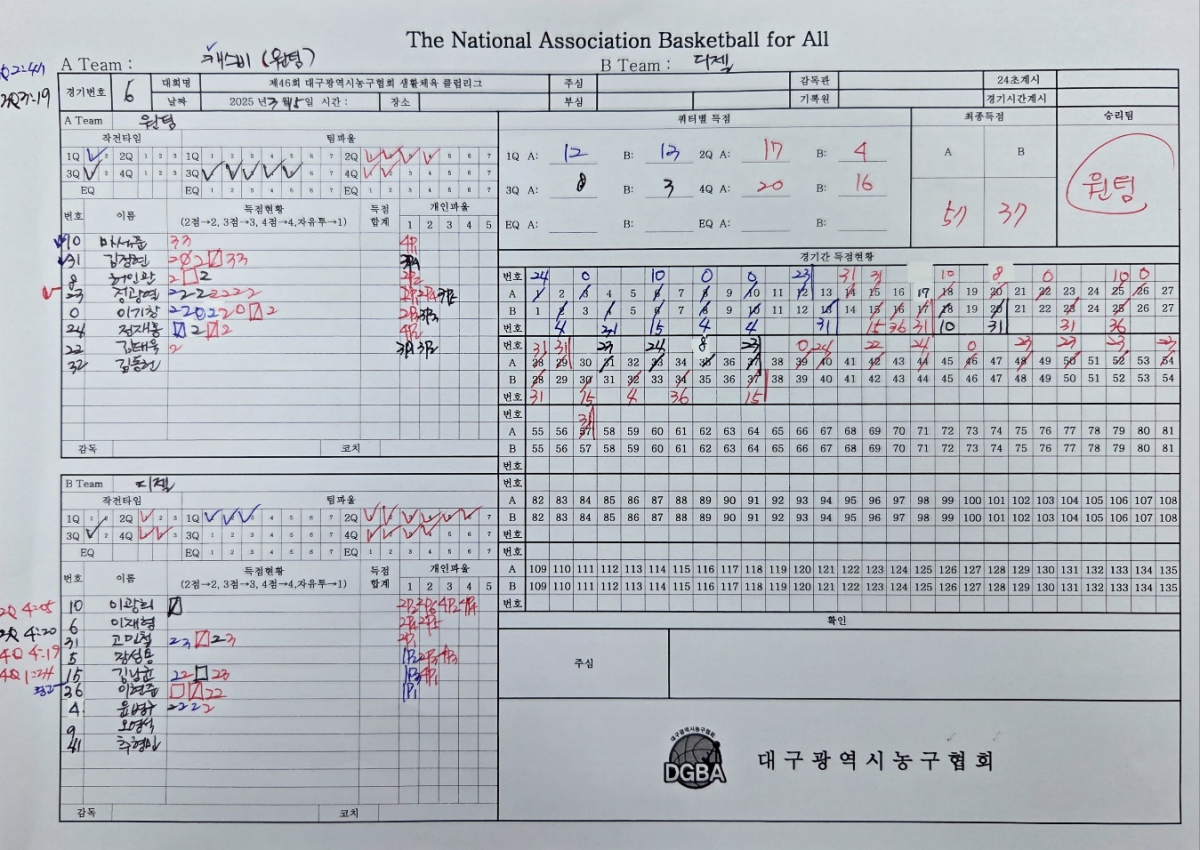 The National Association Basketball for All
A Team : 캐스비 (원팀)
B Team : 디젤
경기번호 6
대회명 제46회 대구광역시농구협회 생활체육 클럽리그
날짜 2025 년 3 월 15 일 시간 : 장소
주심
부심
감독관
기록원
24초계시
경기시간계시
A Team 원팀
작전타임 팀파울
1Q 2Q 1 2 3 1Q 1 2 3 4 5 6 7 2Q 5 6 7
3Q 4Q 1 2 3 3Q 5 6 7 4Q 3 4 5 6 7
EQ EQ 1 2 3 4 5 6 7 EQ 1 2 3 4 5 6 7
번호 이름 득점현황 득점합계 개인파울
(2점→2, 3점→3, 4점→4,자유투→1) 1 2 3 4 5
10 33
31 김정현
8 허인완
23 정광연 22222222
0 이기창
24 정재홍
22 김태욱 2
32 김동현
감독 코치
B Team 디젤
작전타임 팀파울
1Q 2Q 1Q 2Q
3Q 4Q 3Q 4Q
EQ EQ 1 2 3 4 5 6 7 EQ 1 2 3 4 5 6 7
번호 이름 득점현황 득점합계 개인파울
(2점→2, 3점→3, 4점→4,자유투→1) 1 2 3 4 5
10 이광희
6 이재형
31 고민철
5 장성용
15 김남균
36 이현중
4 2222
9 오영석
41 추형민
감독 코치
2Q 4:05
2Q 4:20
4Q 4:19
4Q 1:24
쿼터별 득점
1Q A: 12 B: 13 2Q A: 17 B: 4
3Q A: 8 B: 3 4Q A: 20 B: 16
EQ A: B: EQ A: B:
최종득점
A B
57 37
승리팀
원팀
경기간 득점현황
번호 24 0 10 0 0 23 31 31 10 8 0 10 0
A 1 2 3 4 5 6 7 8 9 10 11 12 13 14 15 16 17 18 19 20 21 22 23 24 25 26 27
B 1 2 3 4 5 6 7 8 9 10 11 12 13 14 15 16 17 18 19 20 21 22 23 24 25 26 27
번호 4 31 15 4 4 31 15 36 31 10 31 31 36
번호 31 31 23 24 8 23 0 24 22 24 0 23 23 23 23
A 28 29 30 31 32 33 34 35 36 37 38 39 40 41 42 43 44 45 46 47 48 49 50 51 52 53 54
B 28 29 30 31 32 33 34 35 36 37 38 39 40 41 42 43 44 45 46 47 48 49 50 51 52 53 54
번호 31 15 4 36 15
번호 31
A 55 56 57 58 59 60 61 62 63 64 65 66 67 68 69 70 71 72 73 74 75 76 77 78 79 80 81
B 55 56 57 58 59 60 61 62 63 64 65 66 67 68 69 70 71 72 73 74 75 76 77 78 79 80 81
번호
번호
A 82 83 84 85 86 87 88 89 90 91 92 93 94 95 96 97 98 99 100 101 102 103 104 105 106 107 108
B 82 83 84 85 86 87 88 89 90 91 92 93 94 95 96 97 98 99 100 101 102 103 104 105 106 107 108
번호
번호
A 109 110 111 112 113 114 115 116 117 118 119 120 121 122 123 124 125 126 127 128 129 130 131 132 133 134 135
B 109 110 111 112 113 114 115 116 117 118 119 120 121 122 123 124 125 126 127 128 129 130 131 132 133 134 135
번호
확인
주심
대구광역시농구협회
DGBA
대구광역시농구협회